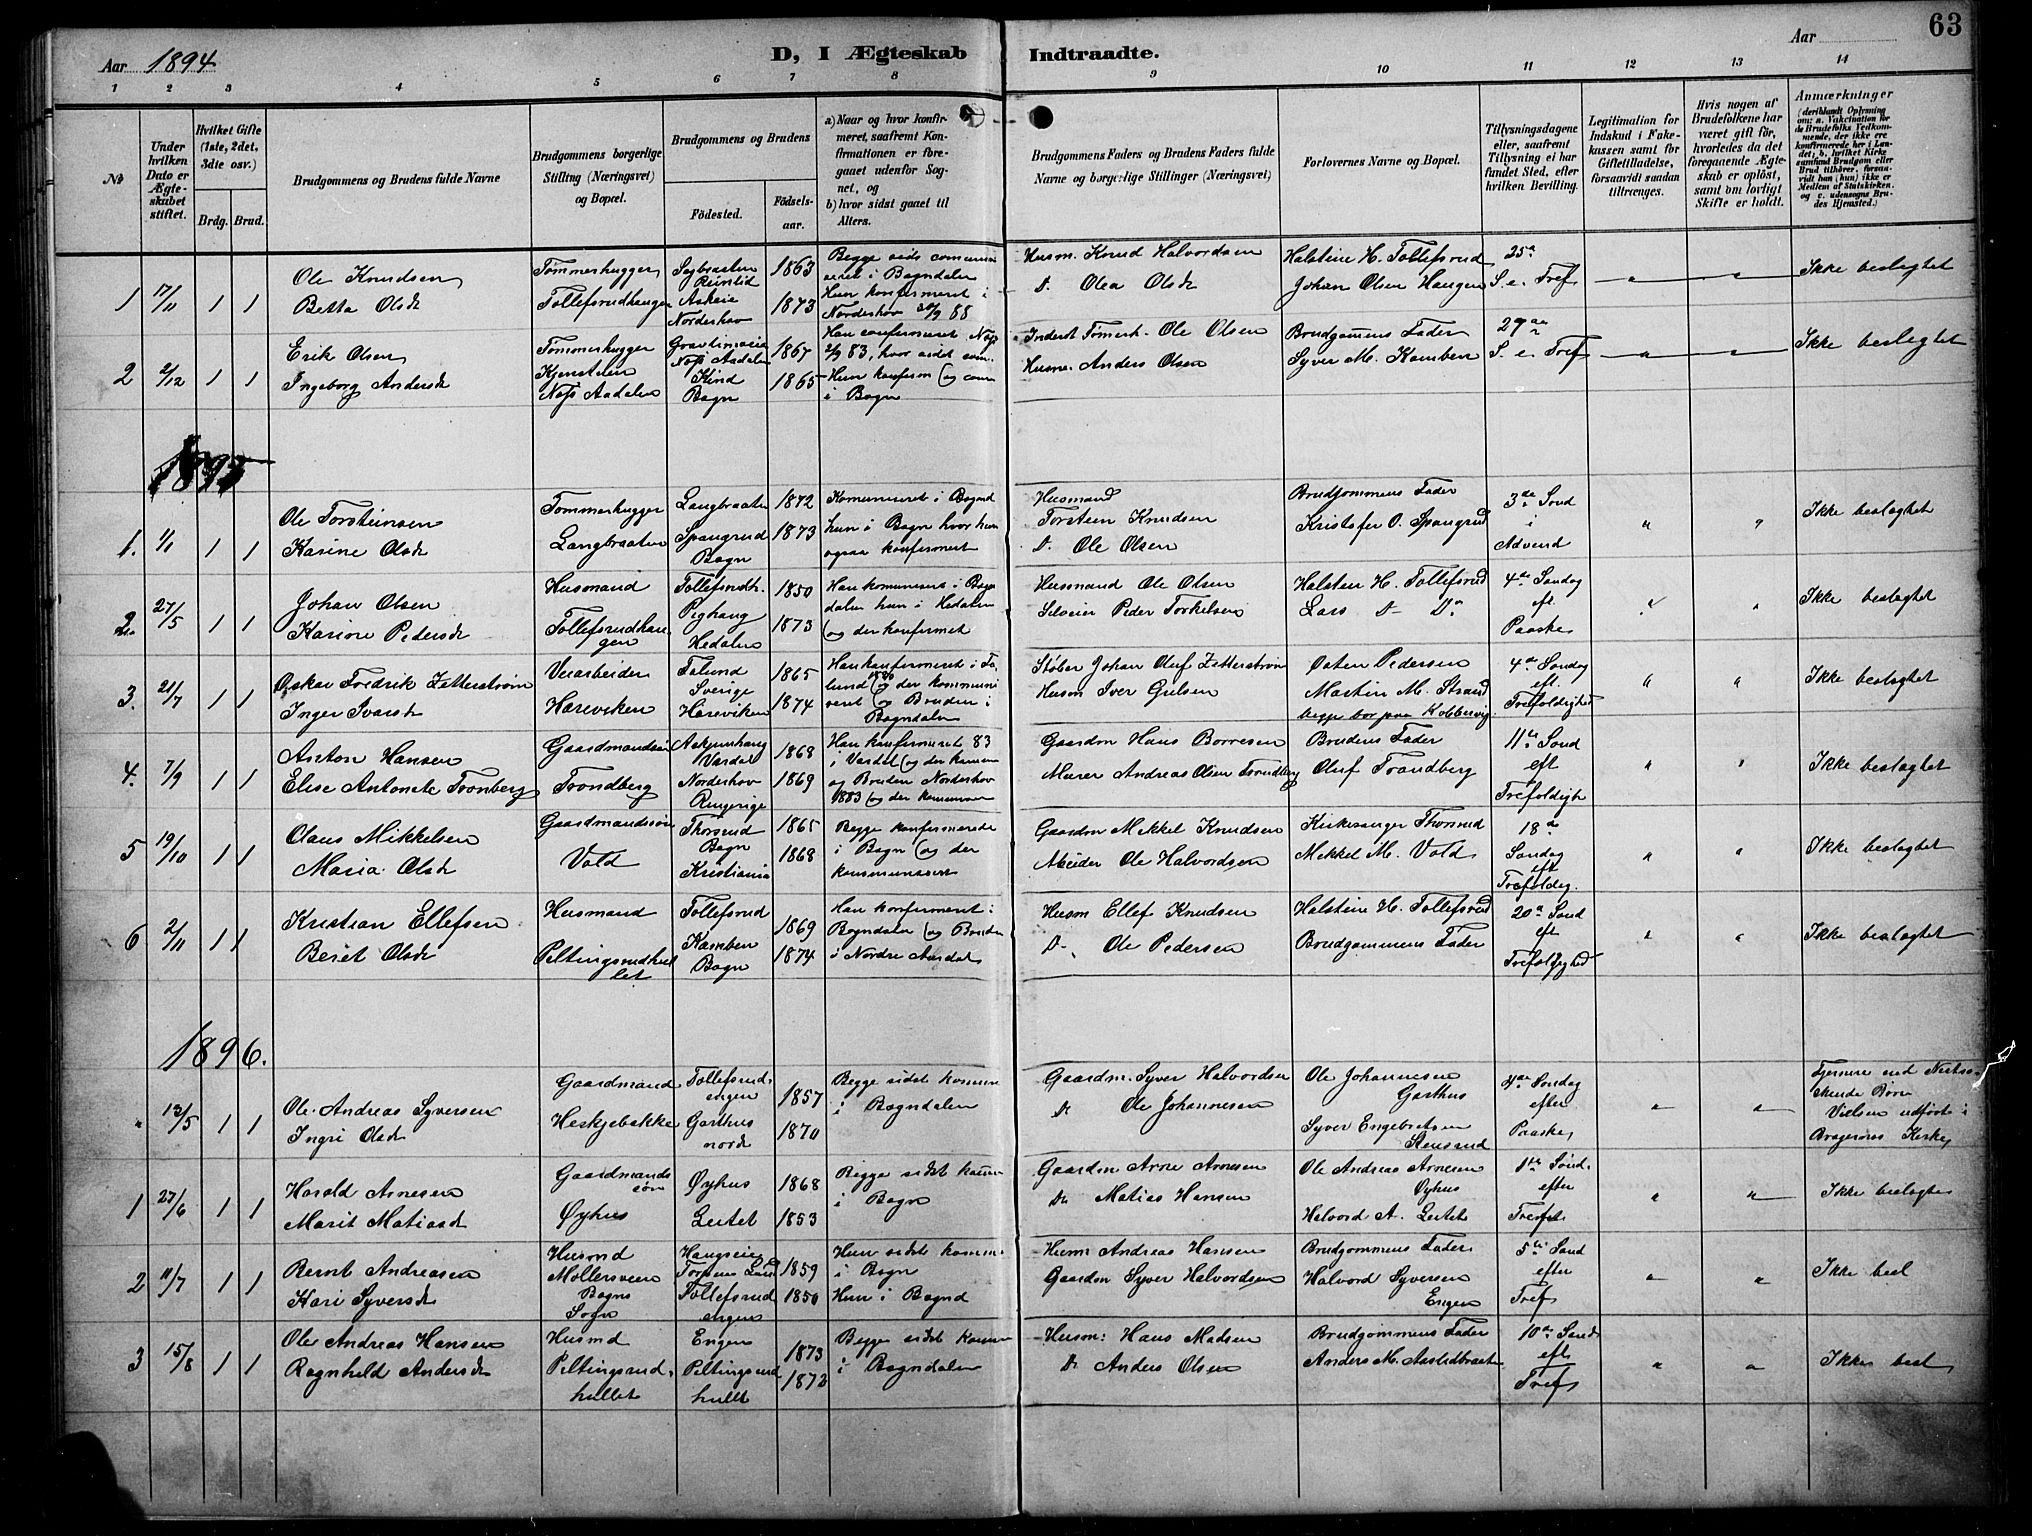 63
Aar 1894
D, I Ægteskab Indtraadte.
Aar
1 2 3 4 5 6 7 8 9 10 11 12 13 14
No
Under hvilken Dato er Ægteskabet stiftet.
Hvilket Gifte (1ste, 2det, 3die osv.)
Brdg. Brud.
Brudgommens og Brudens fulde Navne
Brudgommens borgerlige Stilling (Næringsvei) og Bopæl.
Brudgommens og Brudens
Födested. Födselsaar.
a) Naar og hvor konfirmeret, saafremt Konfirmationen er foregaaet udenfor Sognet, og
b) hvor sidst gaaet til Alters.
Brudgommens Faders og Brudens Faders fulde Navne og borgerlige Stillinger (Næringsvei)
Forlovernes Navne og Bopæl.
Tillysningsdagene eller, saafremt Tillysning ei har fundet Sted, efter hvilken Bevilling.
Legitimation for Indskud i Enkekassen samt for Giftetilladelse, forsaavidt saadan tiltrænges.
Hvis nogen af Brudefolkene har været gift för, hvorledes da det foregaaende Ægteskab er oplöst, samt om lovligt Skifte er holdt.
Anmærkninger
(deriblandt Oplysning om: a. Vakcination for de Brudefolks Vedkommende, der ikke ere konfirmerede her i Landet; b. hvilket Kirkesamfund Brudgom eller Brud tilhörer, forsaavidt han (hun) ikke er Medlem af Statskirken, og c. udensogns Brudes Hjemsted.)
1 17/11 1 1
Ole Knudsen
Betta Olsdr
Tømmerhugger
Tollefsrudhaugen
1863
1873
Begge sidst communiceret i Bagndalen
Hun konfirmeret i Norderhov 88
Husm. Knud Halvordsen
D. Olea Olsdr
Halstein H. Tollefsrud
Johan Olsen Haugen
25de
S. e. Tref
Ikke beslegtet
2 2/12 1 1
Erik Olsen
Ingeborg Andersdr
Tømmerhugger
Næs Aadalen
Næs Aadalen
Bagn
1867
1865
i Bagn
Inderst Tømerh. Ole Olsen
Husm. Anders Olsen
Brudgommens Fader
Syver M. Kamben
27de
S. e. Tref
Ikke beslegtet
1895
1. 1/1 1 1
Ole Torsteinsen
Karine Olsdr
Tømmerhugger
Langbraaten
Langbraaten
Spangrud
Bagn
1872
1873
Komuniseret i Bagnd
hun i Bagn hvor hun
ogsaa konfirmert
Husmand
Torstein Knudsen
D. Ole Olsen
Brudgommens Fader
Kristofer O. Spangrud
3de Sønd
i
Advend
Ikke beslegtet
2. 27/5 1 1
Johan Olsen
Karine Pedersdr
Husmand
Tollefsrudhaugen
Tollefsrudh.
Pighaug
Hedalen
1850
1873
Han komuniseret i Bagndalen hun i Hedalen
og der konfirmet
Husmand Ole Olsen
Selveier Peder Torkelsen
Halsten H. Tollefsrud
Lars D Do
4de Søndag
eft.
Paaske
Ikke beslegtet
3. 21/7 1 1
Oskar Fredrik Zetterstrøm
Inger Iversdr
Veiarbeider
Hæreviken
Falund
Sverige
Hæreviken
1865
1874
Han konfirmeret i Falund og der kommuniseret og Bruden i Bagndalen
Støber Johan Oluf Zetterstrøm
Husm Iver Gulsen
Østen Pedersen
Martin M. Strand
begge bor paa Kobbervig
4de Søndag
eft.
Trefoldighed
Ikke beslegtet
4. 7/9 1 1
Anton Hansen
Elise Antonete Tronberg
Gaardmandsøn
Trondberg
Vardal
Norderhov
Ringerige
1868
1869
Han konfirmeret 83
i Vardal og der komun
og Bruden Norderhov
1883 og der komuniser
Gaardm Hans Børresen
Murer Andreas Olsen Trondberg
Brudens Fader
Oluf Trandberg
11te Sønd
eft
Trefoldigh
Ikke beslegtet
5 19/10 1 1
Claus Mikkelsen
Maria Olsdr
Gaardmandssøn
Vold
Thorsrud
Bagn
Kristiania
1865
1868
Begge konfirmerede
i Bagn og der
kommuniseret
Gaardm Mekkel Knudsen
Abeider Ole Halvordsen
Kirkesanger Thorsrud
Mekkel M. Vold
18de
Søndag
eft
Trefoldig.
Ikke beslegtet
6 2/11 1 1
Kristian Ellefsen
Berit Olsdr
Husmand
Peltingsrudhullet
Tollefsrud
Kamben
Bagn
1869
1874
Han konfirmeret i
Bagndalen og Bruden
i Nordre Aurdal
Husm Ellef Knudsen
D. Ole Pedersen
Halstein H. Tollefsrud
Brudgommens Fader
20de Sønd
eft
Trefoldighed
Ikke beslegtet
1896.
13/5 1 1
Ole Andreas Syversen
Ingri Olsdr
Gaardmand
Heskjebakke
Tollefsrudengen
Garthus
nord
1857
1870
Begge sidst komun
i Bagndalen
Gaardm. Syver Halvordsen
Do Ole Johannesen
Ole Johannesen
Garthus
Syver Engebretsen
Stensrud
4de Søndag
efter
Paaske
Fjernere end Næstsøskende Børn
Vielsen udført i
Bragernes Kirke
1 27/6 1 1
Harald Arnesen
Marit Matiasdr
Gaardmandssøn
Øyhus
Øyhus
Leitet
1868
1853
Begge sidst komun
i Bagn
Gaardm Arne Arnesen
Do Matias Hansen
Ole Andreas Arnesen
Øyhus
Halvord A. Leitet
1ste Sønd.
efter
Trefol
Ikke beslegte
2 11/7 1 1
Bernt Andreasen
Kari Syversdr
Husmd
Møllersveen
Bagns
Sogn
Haugseie
Tollefsrud
engen
1859
1850
Hun sidst komun
i Bagn
Hun i Bagnd
Husm Andreas Hansen
Gaardm Syver Halvordsen
Brudgommens Fader
Halvord Syversen
Engen
5te Sønd
efter
Tref
Ikke besl
3 15/8 1 1
Ole Andreas Hansen
Ragnhild Andersdr
Husmd
Peltingsrud
hullet
Engen
Peltingsrud
hullt
1873
1872
Begge sidst komun
i Bagndalen
Husm: Hans Madsen
Do Anders Olsen
Brudgommens Fader
Anders M. Aaslidbraaten
10de Sønd
eft
Tref
Ikke besl